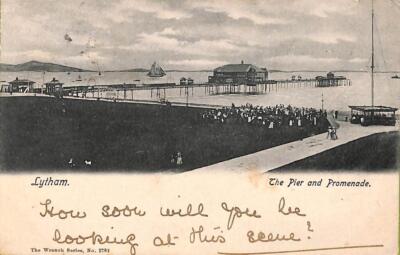 Lytham.
The Pier and Promenade.
How soon will you be
looking at this scene?
The Wrench Series, No. 2781